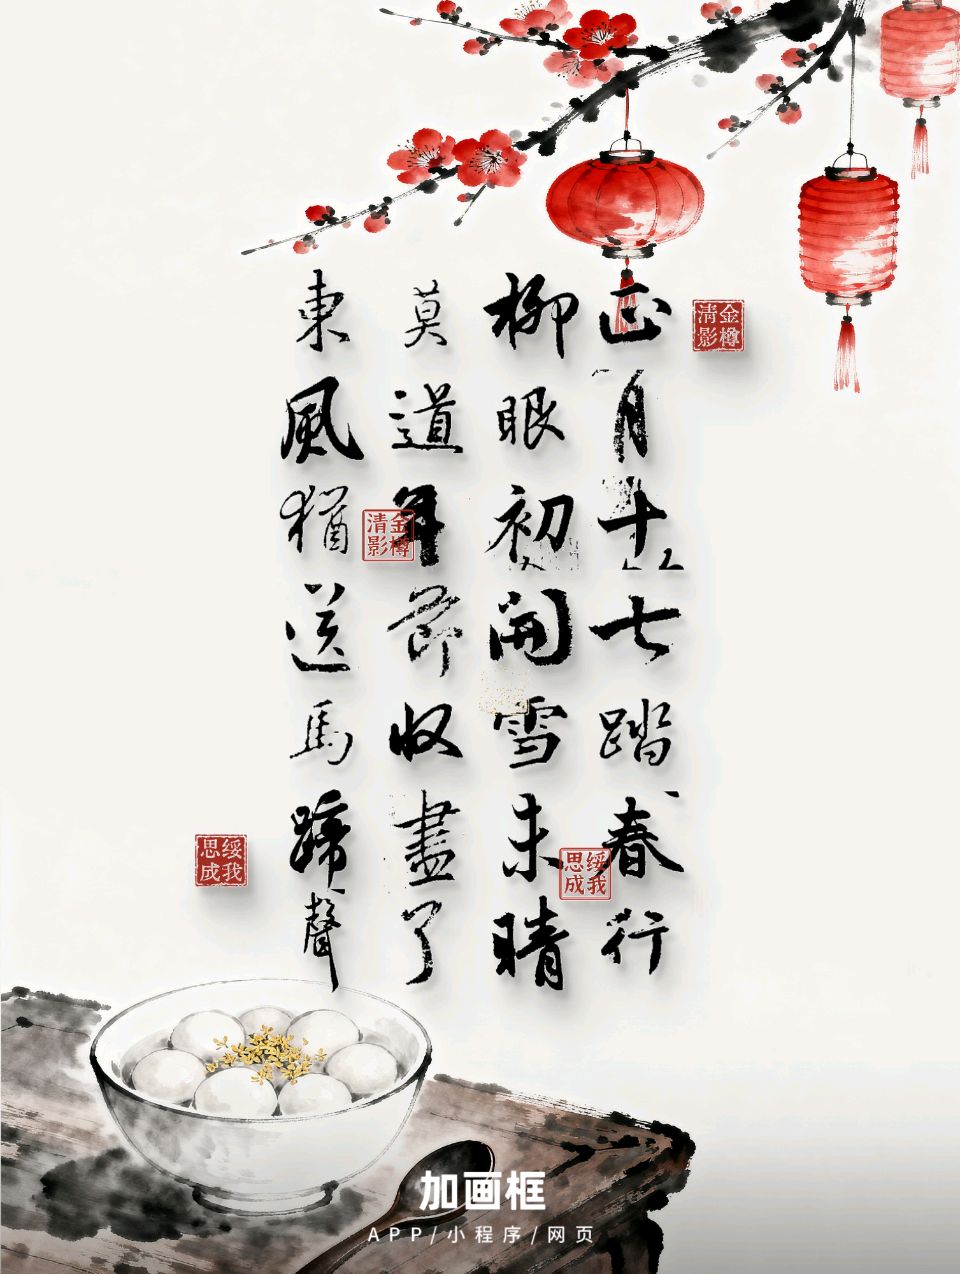 正月十七踏春行
柳眼初開雪未晴
莫道年節收盡了
東風猶送馬蹄聲
金樽清影
金樽清影
綏我思成
綏我思成
加画框
APP/小程序/网页